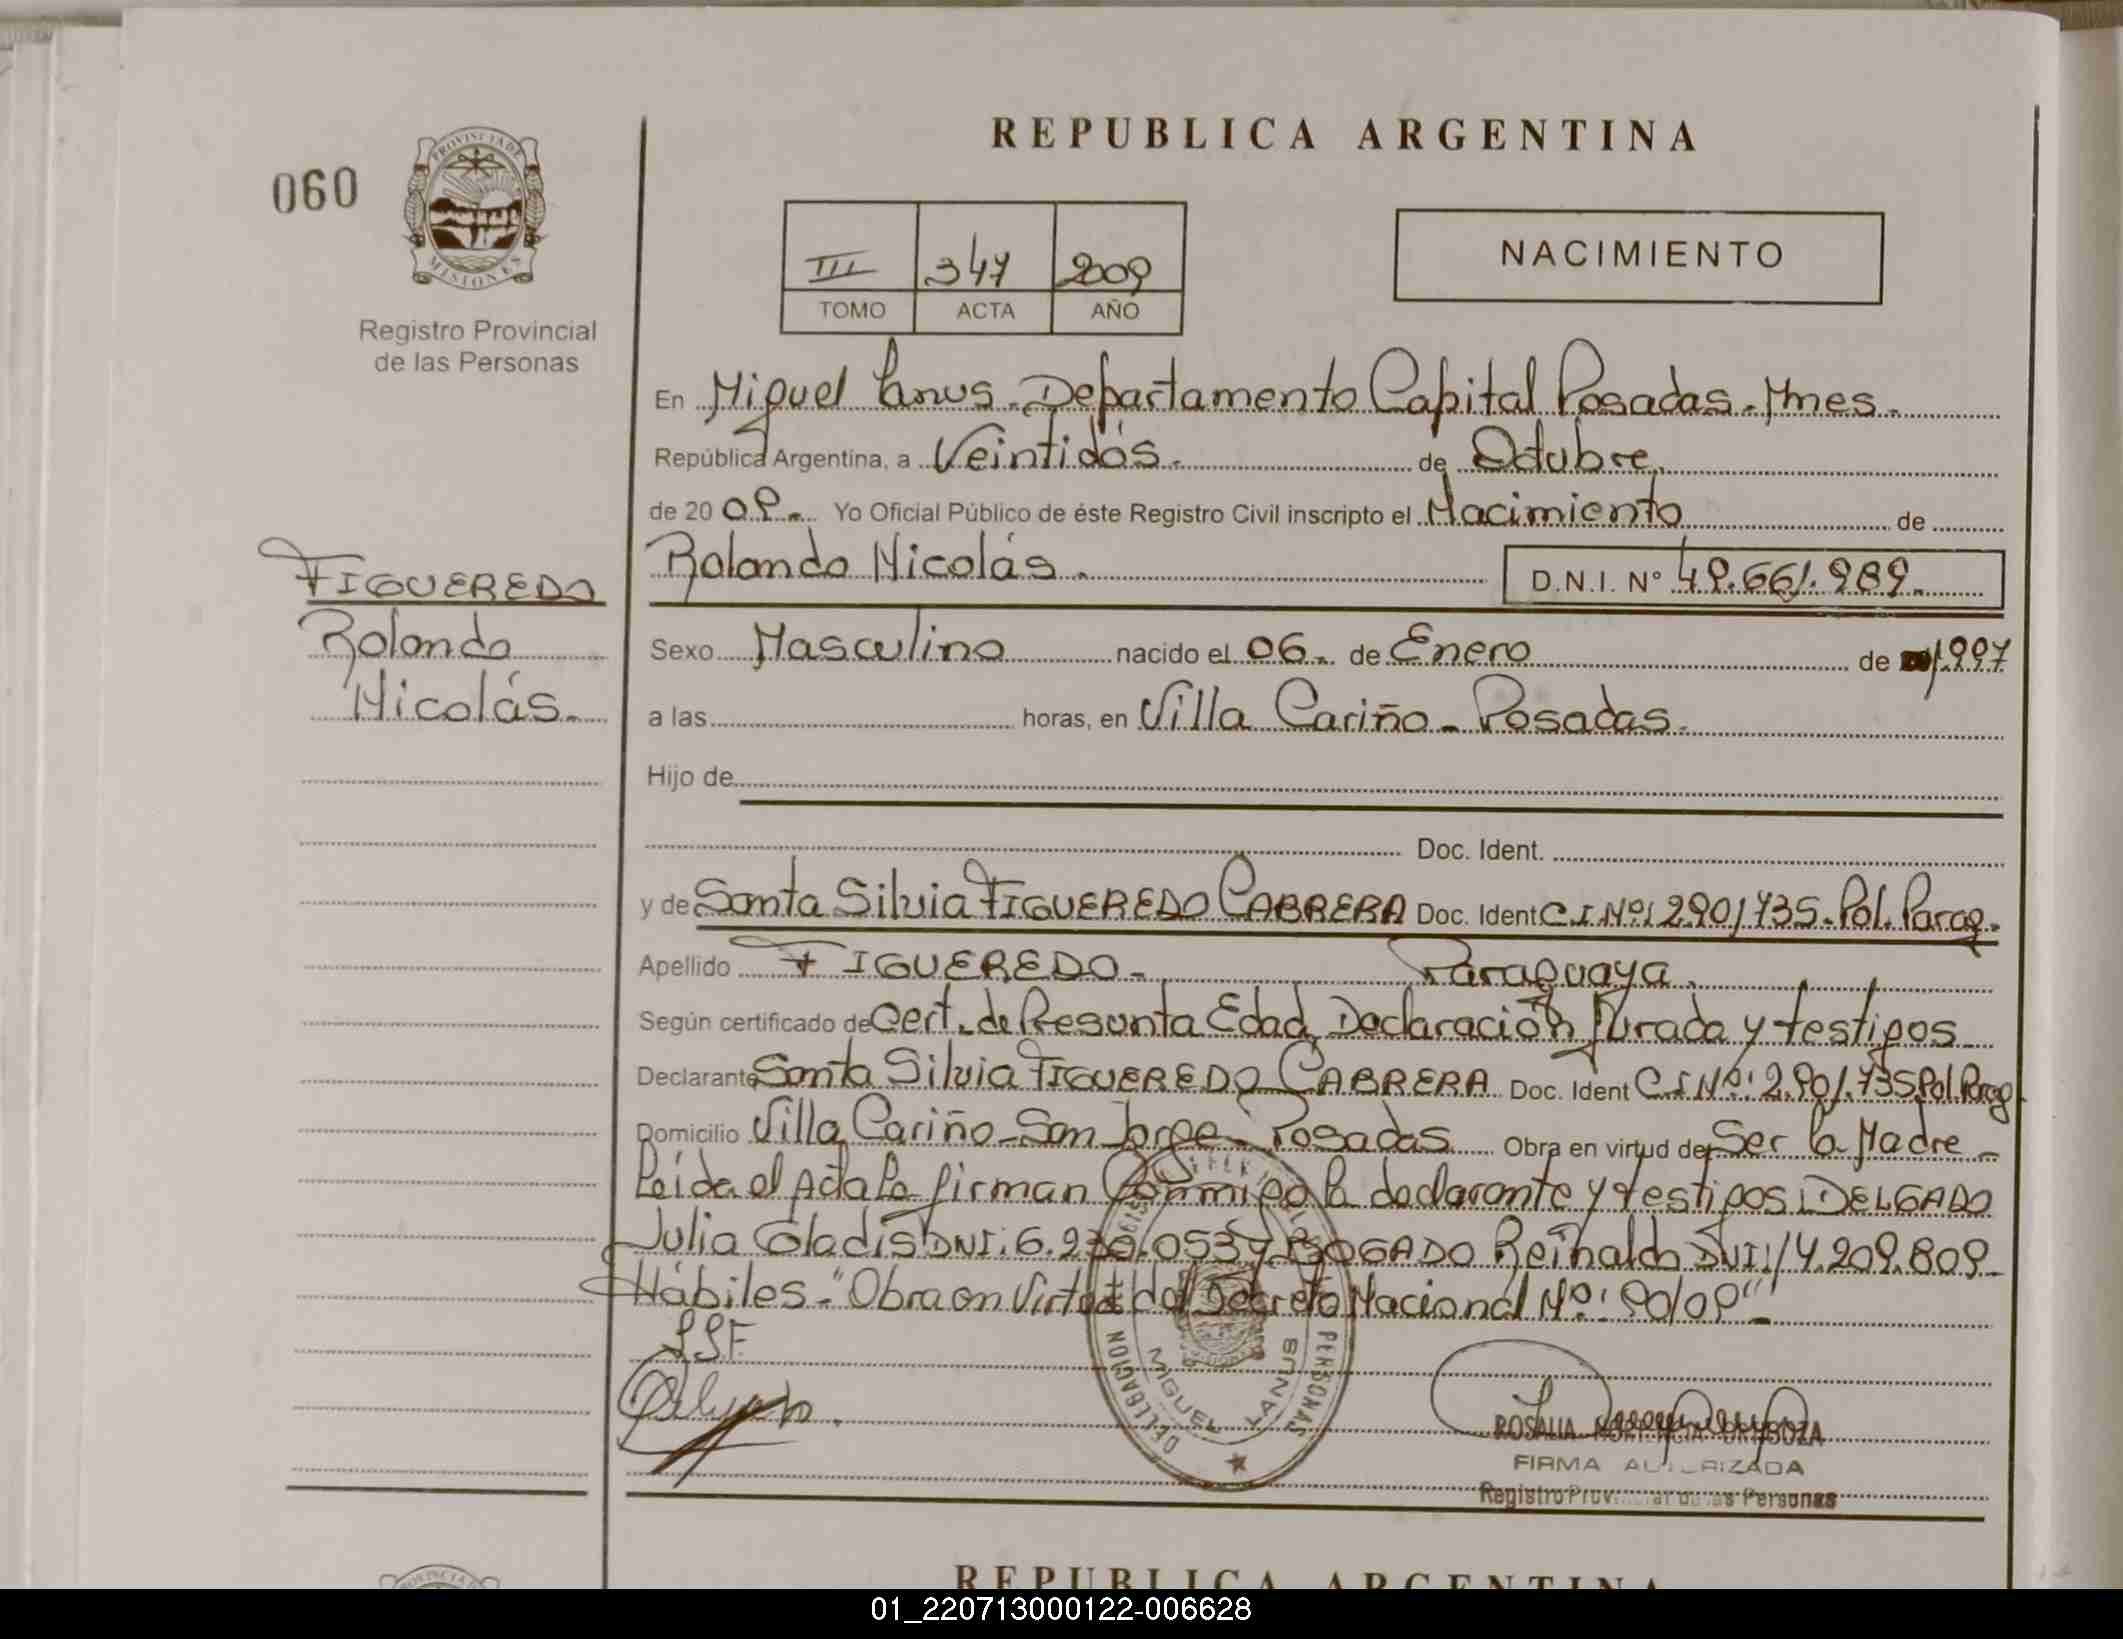 REPUBLICA ARGENTINA
060
PROVINCIA DE
MISIONES
Registro Provincial
de las Personas
III 347 2009
TOMO ACTA AÑO
NACIMIENTO
En Miguel Lanus - Departamento Capital Posadas - Mnes -
República Argentina, a Veintidós - de Octubre
de 20 09 - Yo Oficial Público de éste Registro Civil inscripto el Nacimiento de
Rolando Nicolás - D.N.I. N° 49.661.989 -
FIGUEREDO
Rolando
Nicolás -
Sexo Masculino nacido el 06 - de Enero de 1997
a las horas, en Villa Cariño - Posadas -
Hijo de
Doc. Ident.
y de Santa Silvia FIGUEREDO CABRERA Doc. Ident C.I. Nº: 2.901.735 - Pol. Parag -
Apellido FIGUEREDO - Paraguaya
Según certificado de Cert. de Presunta Edad Declaración Jurada y testigos -
Declarante Santa Silvia FIGUEREDO CABRERA Doc. Ident C.I Nº: 2.901.735 Pol. Parag
Domicilio Villa Cariño - San Jorge - Posadas Obra en virtud de Ser la Madre -
Leída el Acta la firman Conmigo la declarante y testigos: DELGADO
Julia Gladis DNI: 6.2 .053 y BOGADO Reinaldo DNI: 14.209.809 -
Hábiles - "Obra en Virtud del Decreto Nacional Nº: 90/09" -
SSF
DELEGACION
MIGUEL LANUS
PERSONAS
ROSALIA
FIRMA AUTORIZADA
Registro Provincial de las Personas
REPUBLICA ARGENTINA
01_220713000122-006628